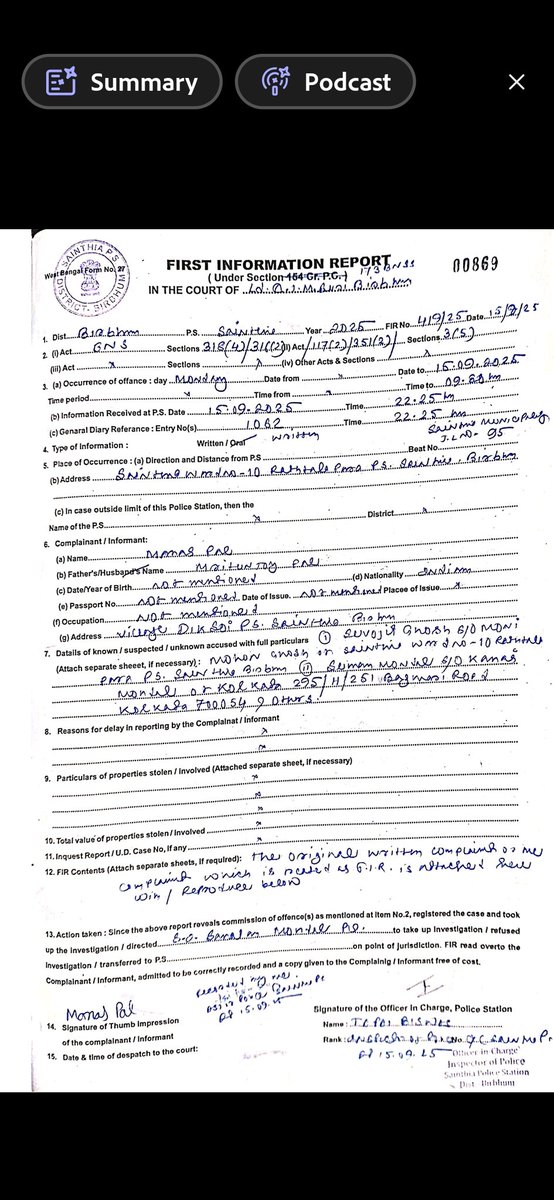 Summary
Podcast
SAINTHIA P.S
DISTRICT. BIRBHUM
West Bengal Form No. 27
FIRST INFORMATION REPORT
00869
( Under Section 154 Cr. P.C. ) 173 BNSS
IN THE COURT OF Ld. A.C.J.M. Suri Birbhum
1. Dist. Birbhum P.S. Sainthia Year 2025 FIR No. 419/25 Date 15/9/25
2. (i) Act BNS Sections 318(4)/316(2) (ii) Act /117(2)/351(2)/ Sections 3(5)
(iii) Act x Sections x (iv) Other Acts & Sections x
3. (a) Occurrence of offence : day Monday Date from Date to 15.09.2025
Time period x Time from x Time to
(b) Information Received at P.S. Date 15.09.2025 Time 22.25 hrs
(c) General Diary Referance : Entry No(s) 1062 Time 22.25 hrs
4. Type of Information : Written / Oral written
5. Place of Occurrence : (a) Direction and Distance from P.S Beat No. Sainthia Municipality J.L. No- 95
(b) Address Sainthia Ward no-10 Rathtala Para P.S. Sainthia, Birbhum
(c) In case outside limit of this Police Station, then the
Name of the P.S. x District x
6. Complainant / Informant:
(a) Name Manas Pal
(b) Father's/Husband's Name Mritunjoy Pal
(c) Date/Year of Birth not mentioned (d) Nationality Indian
(e) Passport No. not mentioned Date of Issue. not mentioned Place of Issue x
(f) Occupation Not mentioned
(g) Address village Diksoi P.S. Sainthia Birbhum
7. Datails of known / suspected / unknown accused with full particulars (i) Suvojit Ghosh S/O Moni
(Attach separate sheeet, if necessary) : Mohon Ghosh of Sainthia Ward no-10 Rathtala
Para P.S. Sainthia Birbhum (ii) Saiman Mondal S/O Kanai
Mondal of Kolkata 295/H/251 Bagmari Road
Kolkata 700054 & Others.
8. Reasons for delay in reporting by the Complainat / Informant
x
x
9. Particulars of properties stolen / Involved (Attached separate sheet, if necessary)
x
x
x
x
10. Total value of properties stolen / Involved x
11. Inquest Report / U.D. Case No, if any x
12. FIR Contents (Attach separate sheets, if required): The original written complaint of the
complaint which is treated as F.I.R. is attached here
with / Reproduce below
13. Action taken : Since the above report reveals commission of offence(s) as mentioned at item No.2, registered the case and took
up the Investigation / directed Mondal to take up Investigation / refused
Investigation / transferred to P.S. on point of jurisdiction. FIR read overto the
Complainant / Informant, admitted to be correctly recorded and a copy given to the Complainig / Informant free of cost.
Manas Pal
15.09.25
Signature of the Officer In Charge, Police Station
14. Signature of Thumb Impression
of the complainant / Informant
Name : Biswas
Rank: Inspector of Police No. OC Sainthia P.S
15. Date & time of despatch to the court:
15.09.25
Officer in Charge
Inspector of Police
Sainthia Police Station
Dist. Birbhum